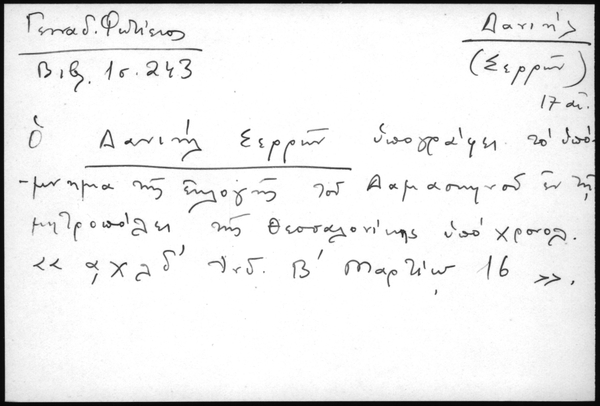 Γενναδ. Φωτίειος
Βιβλ. 1σ. 243
Δανιήλ
(Σερρῶν)
17 αἰ.
Ὁ Δανιήλ Σερρῶν ὑπογράφει τό ὑπό-
-μνημα τῆς ἐκλογῆς τοῦ Δαμασκηνοῦ ἐν τῇ
μητροπόλει τῆς Θεσσαλονίκης ὑπό χρονολ.
<< ͵αχλδ' Ἰνδ. Β' Μαρτίῳ 16 >>.